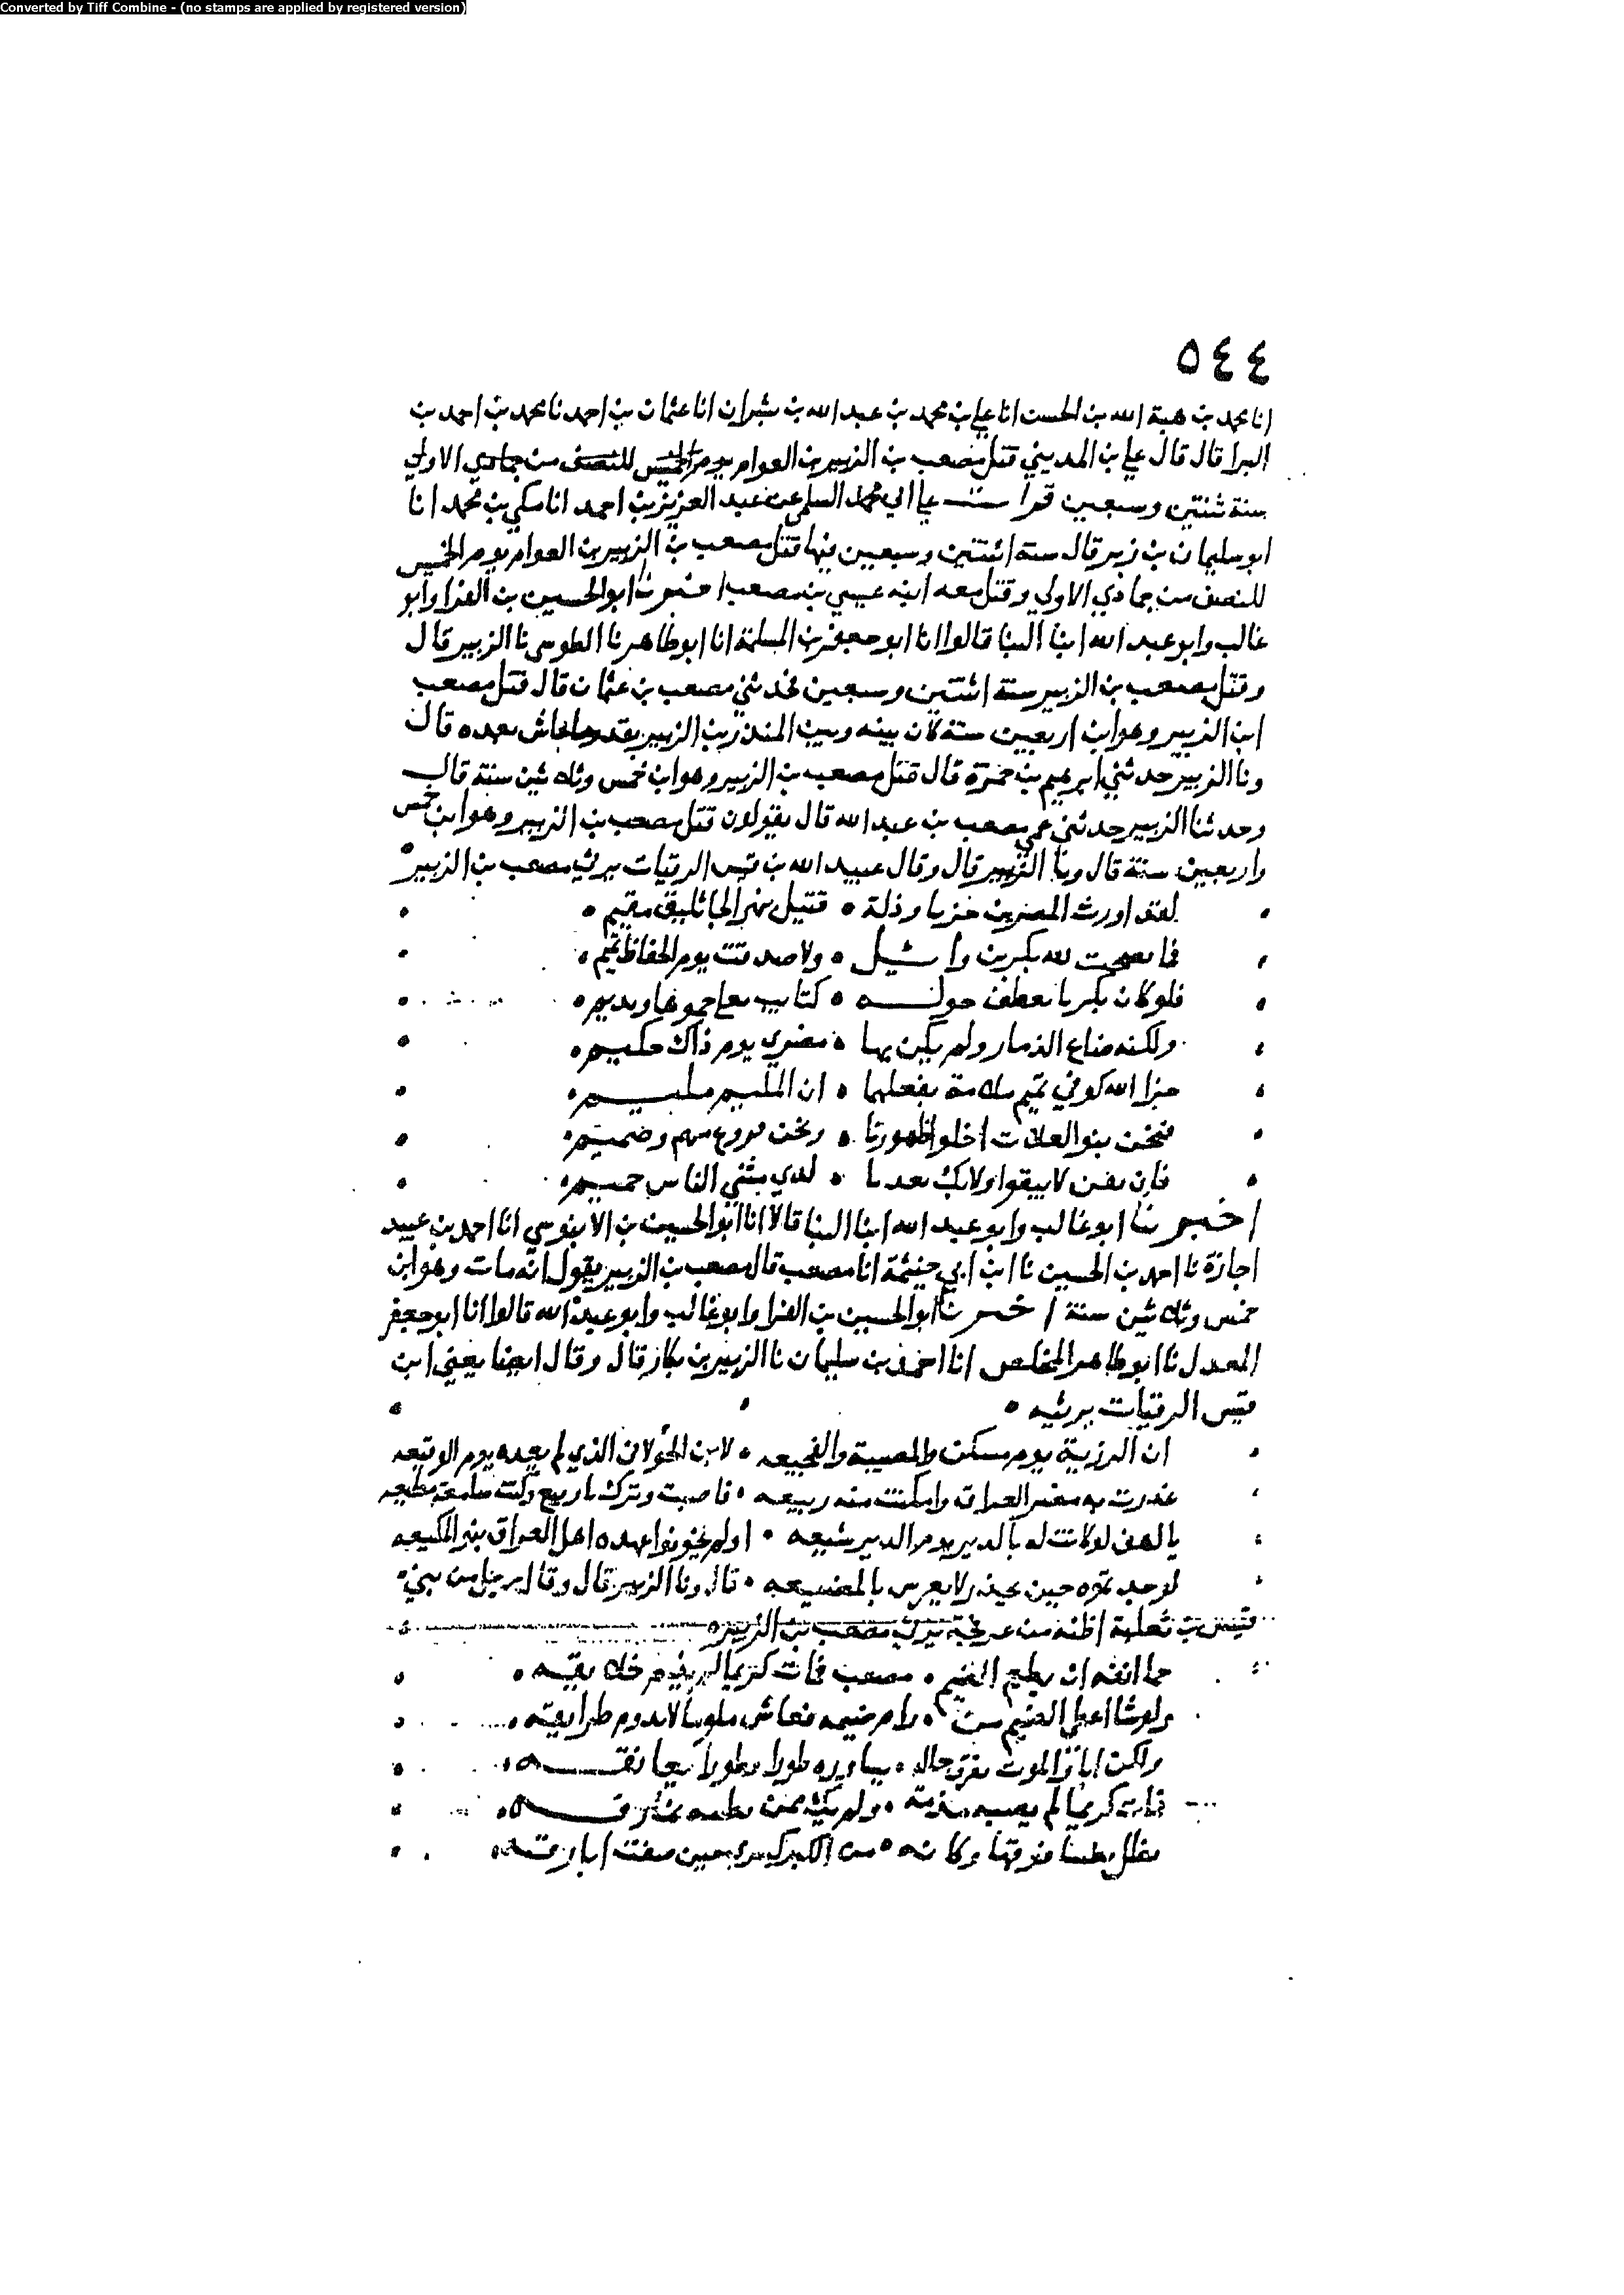 Converted by Tiff Combine - (no stamps are applied by registered version)
٥٤٤
انا محمد بن هبة الله بن الحسن انا علي بن محمد بن عبد الله بن بشران انا عثمان بن احمد نا محمد بن احمد بن
البرا قال قال علي بن المديني قتل مصعب بن الزبير بن العوام يوم الخميس للنصف من جمادي الاولي
سنة ثنتين وسبعين قرات علي ابي محمد السلمي عن عبد العزيز بن احمد انا مكي بن محمد انا
ابو سليمان بن زبر قال سنة اثنتين وسبعين فيها قتل مصعب بن الزبير بن العوام يوم الخميس
للنصف من جمادي الاولي وقتل معه ابنه عيسي بن مصعب اخبرنا ابو الحسين بن الفرا وابو
غالب وابو عبد الله ابنا البنا قالوا انا ابو جعفر بن المسلمة انا ابو طاهر نا الطوسي نا الزبير قال
وقتل مصعب بن الزبير سنة اثنتين وسبعين فحدثني مصعب بن عثمان قال قتل مصعب
ابن الزبير وهو ابن اربعين سنة كان بينه وبين المنذر بن الزبير بقدر ما عاش بعده قال
ونا الزبير حدثني ابرهيم بن حمزة قال قتل مصعب بن الزبير وهو ابن خمس وثلاثين سنة قال
وحدثنا الزبير حدثني عمي مصعب بن عبد الله قال يقولون قتل مصعب بن الزبير وهو ابن خمس
واربعين سنة قال ونا الزبير قال وقال عبيد الله بن قيس الرقيات يرثي مصعب بن الزبير
لقد اورث المصرين خزيا وذلة قتيل بنهر الجاثليق مقيم
فما نصحت لله بكر بن وائيل ولا صدقت يوم الحفاظ تميم
فلو كان بكريا تعطف حوله كتايب يعلي حموها ويديم
ولكنه ضاع الذمار ولم يكن بها مضري يوم ذاك حكيم
جزا الله كوفي تميم ملامة بفعلهما ان المليم مليم
فنحن بنو العلات اخلوا ظهورنا ونحن فروع منهم وصميم
فان نفن لا يبقوا ولا يك بعدنا لذي ... الناس حميم
اخبرنا ابو غالب وابو عبد الله ابنا البنا قالا انا ابو الحسين بن الابنوسي انا احمد بن عبيد
اجازة نا احمد بن الحسين نا ابن ابي خيثمة انا مصعب قال مصعب بن الزبير يقول انه مات وهو ابن
خمس وثلاثين سنة اخبرنا ابو الحسين بن الفرا وابو غالب وابو عبد الله قالوا انا ابو جعفر
المعدل نا ابو طاهر المخلص انا احمد بن سليمان نا الزبير بن بكار قال وقال ايضا يعني ابن
قيس الرقيات يرثيه
ان الرزية يوم مسكن والمصيبة والفجيعه لابن الذي لم يعده يوم الوقيعه
غدرت به مضر العراق وامكنت منه ربيعه فاصبت وترك يا ربيع وكنت سامعة مطيعه
يا لهف لو كانت له بالدير يوم الدير شيعه اولم يخونوا عهده اهل العراق بنو اللكيعه
لوجدتموه حين يحذر لا يعرس بالمضيعه قال ونا الزبير قال وقال رجل من بني
قيس بن ثعلبة اظنه من عرفجة يرثي مصعب بن الزبير
حما انفه ان يطعم الضيم مصعب فمات كريما لم يذمم خلايقه
ولو شا اعطي الضيم من رام ضيمه فعاش ملوما لا يدوم طرايقه
ولكن ابا والموت يبرق خاله يساوره طورا وطورا يعانقه
فمات كريما لم يصبه مذمة ولم يك ممن